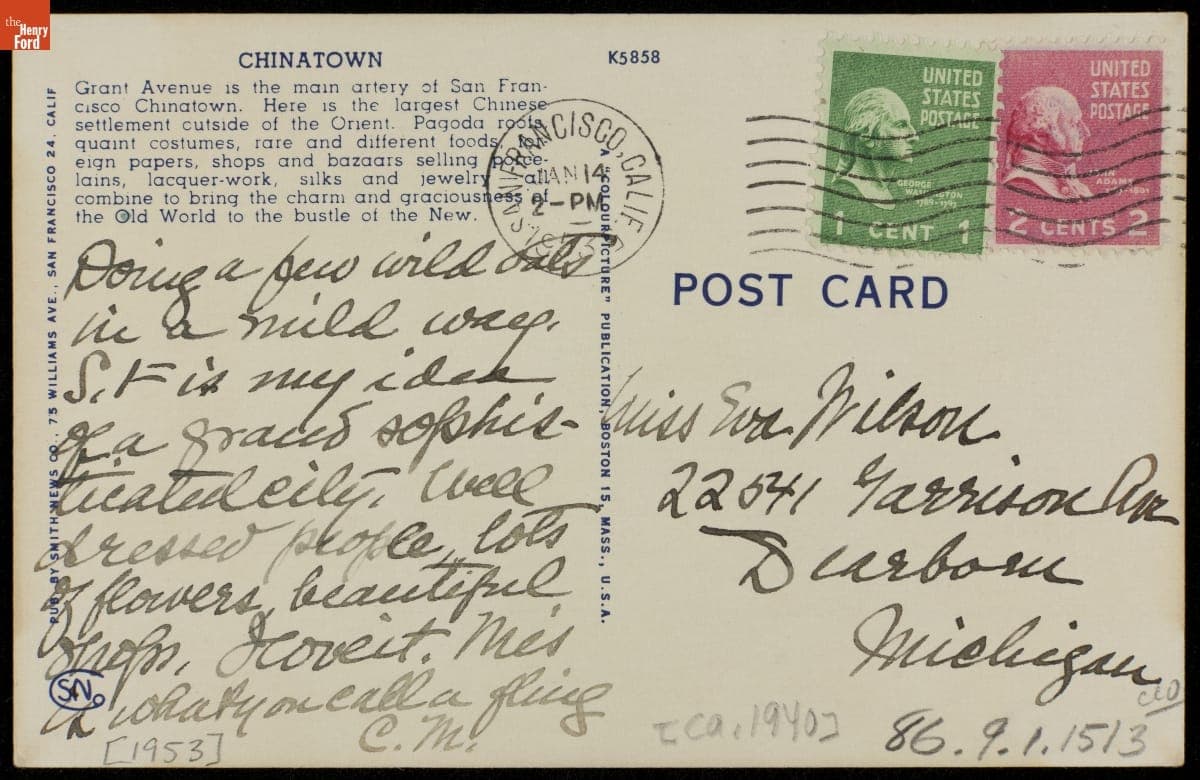 the
Henry
Ford
CHINATOWN
K5858
Grant Avenue is the main artery of San Fran-
cisco Chinatown. Here is the largest Chinese
settlement outside of the Orient. Pagoda roofs,
quaint costumes, rare and different foods,
eign papers, shops and bazaars selling porce-
lains, lacquer-work, silks and jewelry all
combine to bring the charm and graciousness of
the Old World to the bustle of the New.
SAN FRANCISCO, CALIF.
JAN 14
2-PM
1953
UNITED
STATES
POSTAGE
GEORGE
WASHINGTON
1789-1797
1 CENT 1
UNITED
STATES
POSTAGE
JOHN
ADAMS
1797-1801
2 CENTS 2
POST CARD
PUB. BY SMITH NEWS CO., 75 WILLIAMS AVE., SAN FRANCISCO 24, CALIF
A "COLOURPICTURE" PUBLICATION, BOSTON 15, MASS., U.S.A.
Doing a few wild oats
in a mild way.
S.F is my idea
of a grand sophis-
ticated city. Well
dressed people, lots
of flowers, beautiful
shops. I love it. This
is what you call a fling
C.M.
Miss Eva Wilson
22541 Garrison Ave
Dearborn
Michigan
SN
[1953]
[ca. 1940]
86.9.1.1513